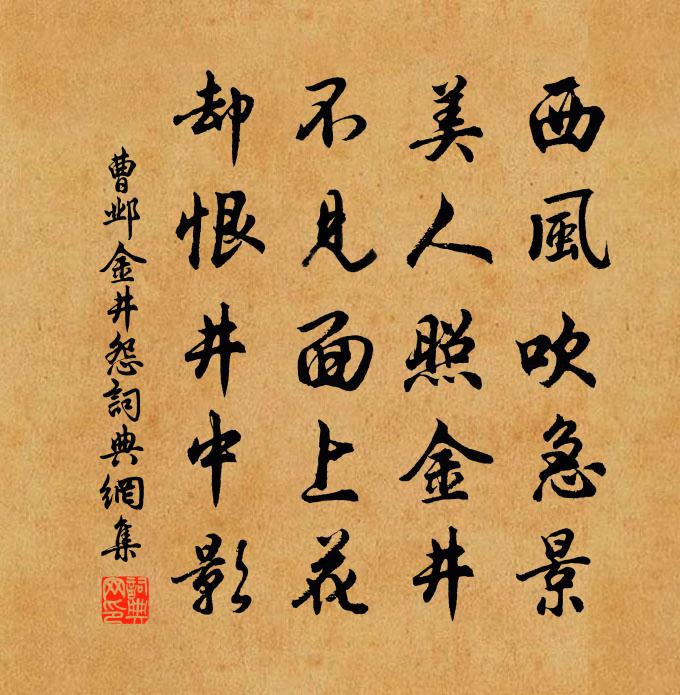 西風吹急景
美人照金井
不見面上花
却恨井中影
曹邺金井怨詞典網集
詞典网印